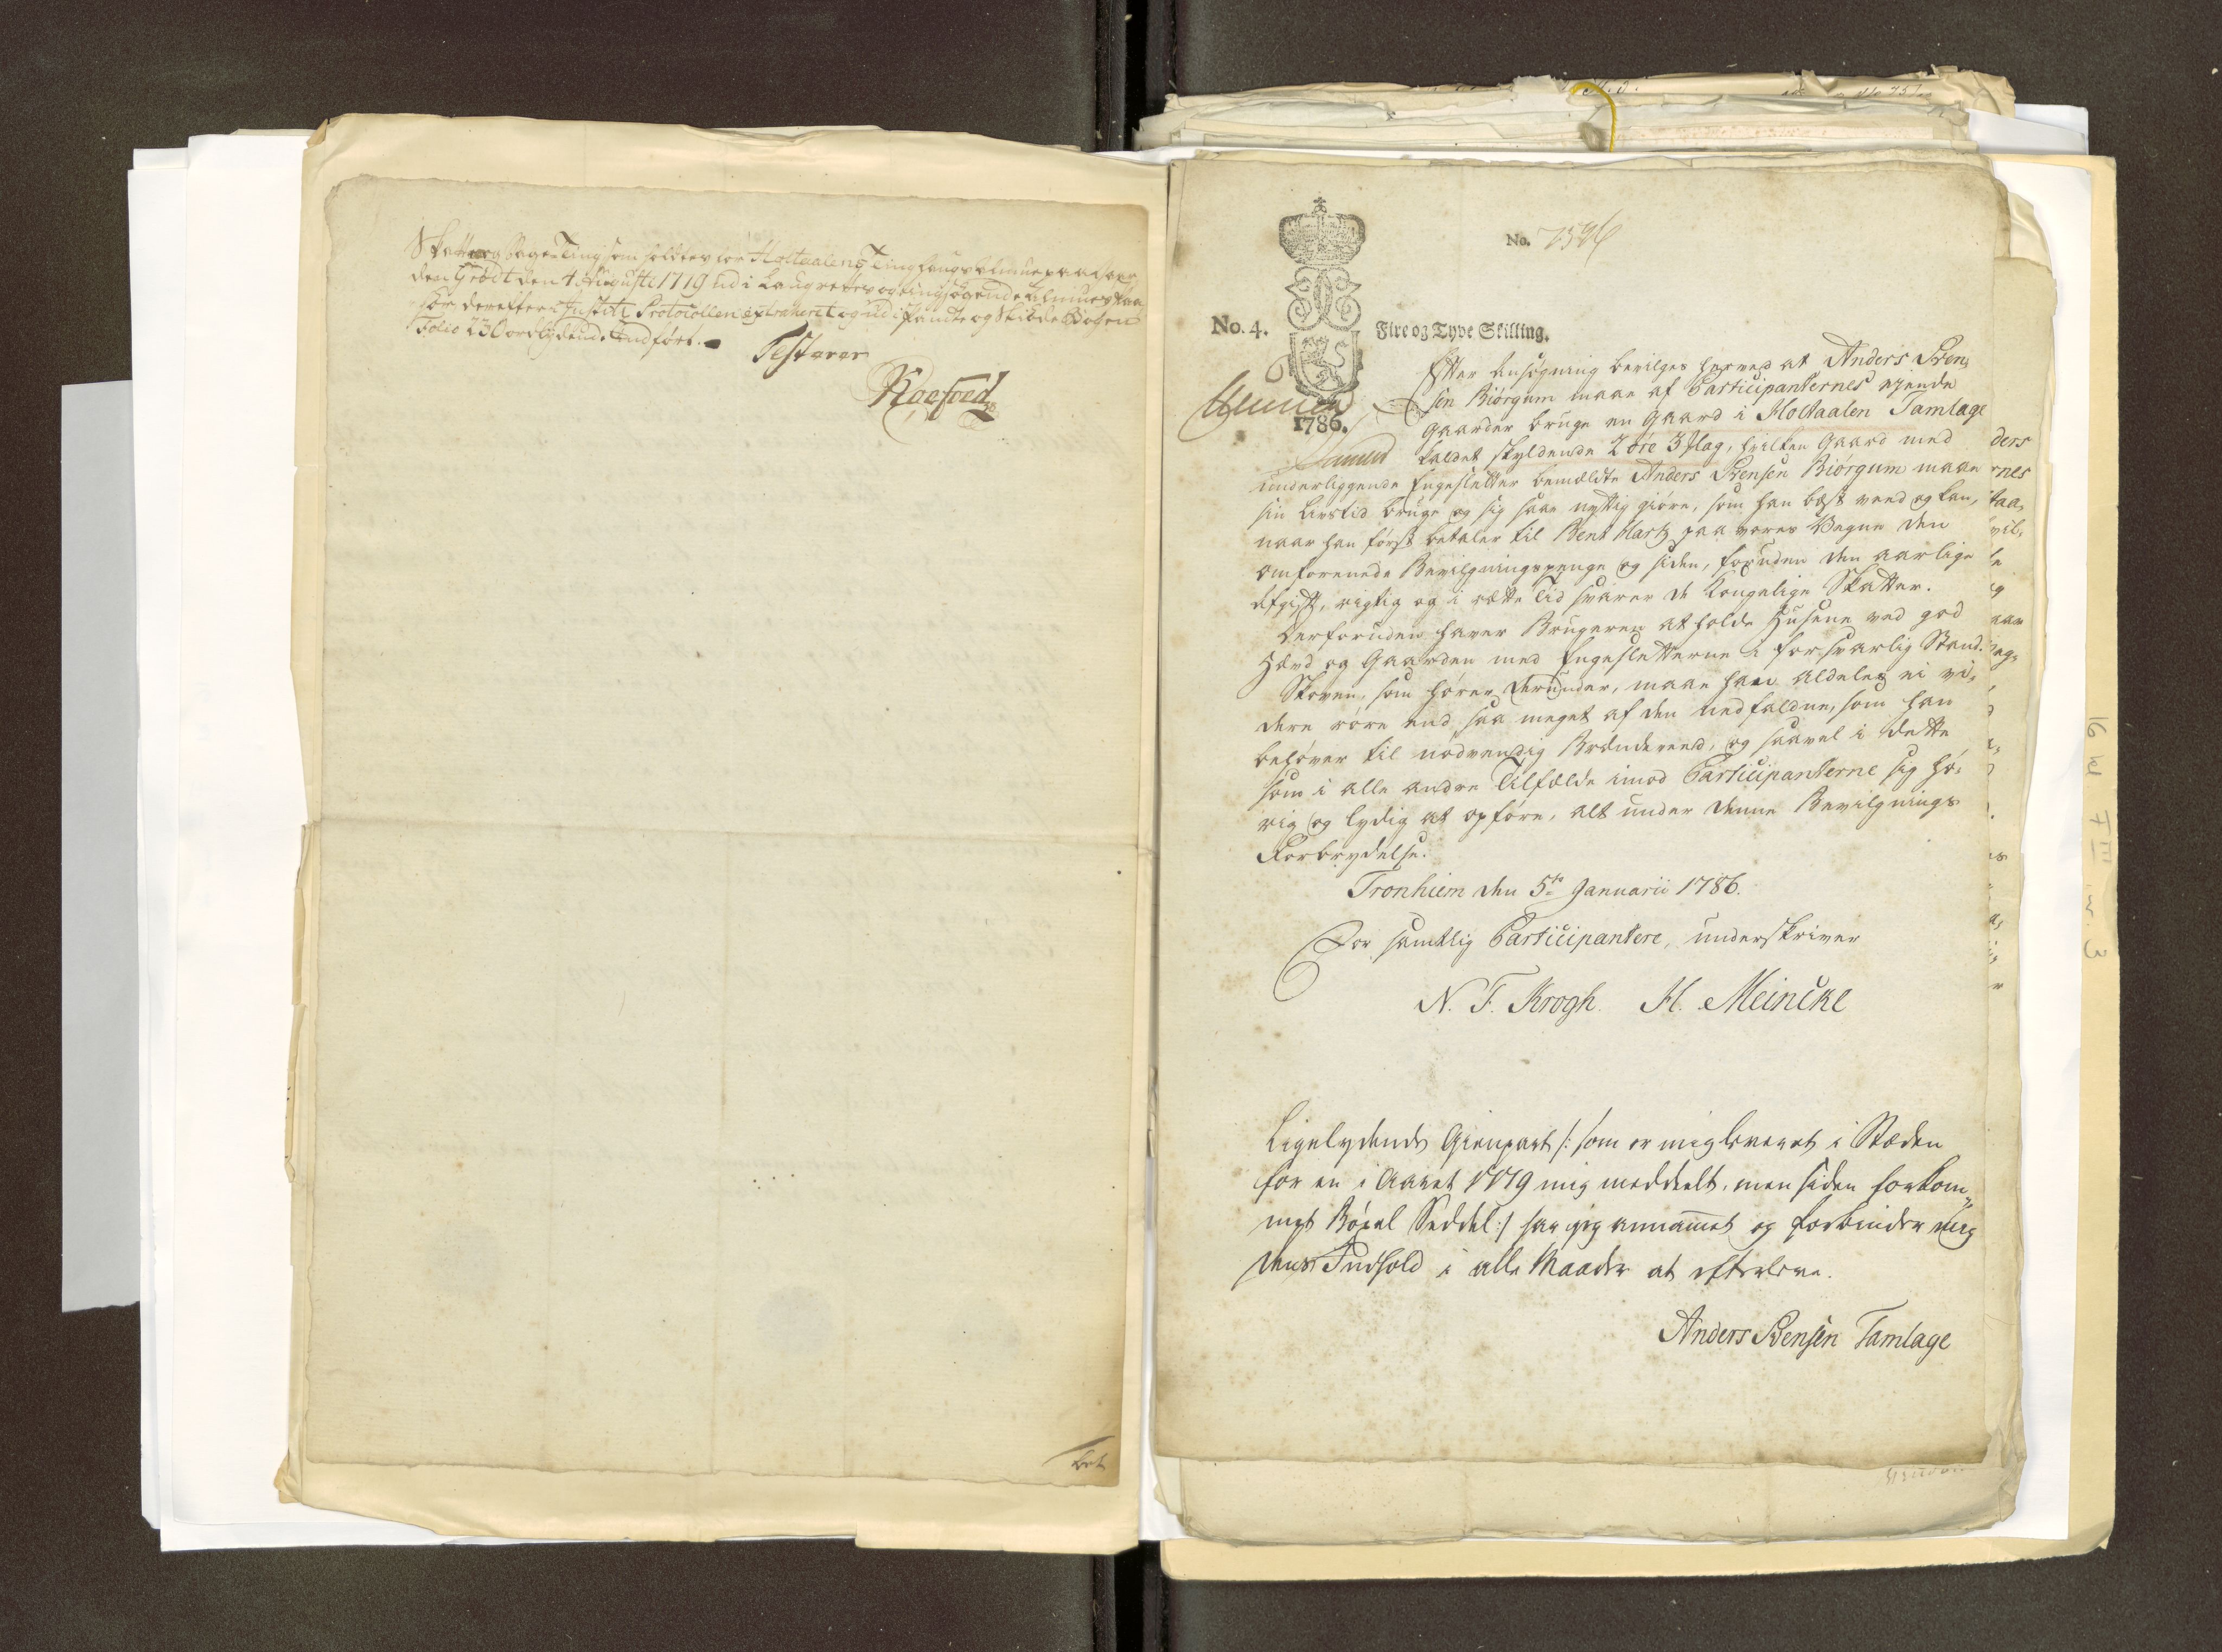 Skatte og Sage Ting som holdtes for Holtaalens Tinglaugs Almue paa Gaar
den Grødt den 4 Augusti 1719 ud i Laugrettes og tingsøgende Almues Paa
hør, dereffter i Justitz Protocollen extraheret og ud i Pandte og Skiøde Bogen
Folio 230 ordlydende Indført.
Testerer
Koefoed
No. 7396
No. 4.
Fire og Tyve Skilling.
1786.
Efter Ansøgning bevilges herved at Anders Sven,
sen Biörgum maae af Participanternes ejende
Gaarder bruge en Gaard i Holtaalen Tamlage
kaldet skyldende 2 öre 3 Mag, hvilken Gaard med
underliggende Engesletter bemældte Anders Svensen Biörgum maae
sin Livstid bruge og sig saa nyttig giöre, som han bæst veed og kan,
naar han först betaler til Bent Hartz paa vores Vegne den
omforenede Bevilgningspenge og siden, foruden den aarlige
Afgift, rigtig og i rette Tid svarer de Kongelige Skatter.
Derforuden haver Brugeren at holde Husene ved god
Hævd og Gaarden med Engesletterne i forsvarlig Stand.
Skoven, som hörer derunder, maae han aldeles ei vi,
dere röre end saa meget af den nedfaldne, som han
behöver til nödvendig Brændeveed, og saavel i dette
som i alle andre Tilfælde imod Participanterne sig hö,
rig og lydig at opföre, alt under denne Bevilgnings
Forbrydelse.
Tronhiem den 5te Januarii 1786.
For samtlig Participantere, underskriver
N. F. Krogh. H. Meincke
Ligelydende Gienpart /: som er mig leveret i Stæden
for en i Aaret 1779 mig meddeelt, men siden forkom,
met Böxel Seddel :/ har jeg annammet og forbinder mig
dens Indhold i alle Maader at efterleve.
Anders Svensen Tamlage
ders
rnes
taa,
vil,
16 kl F III n. 3